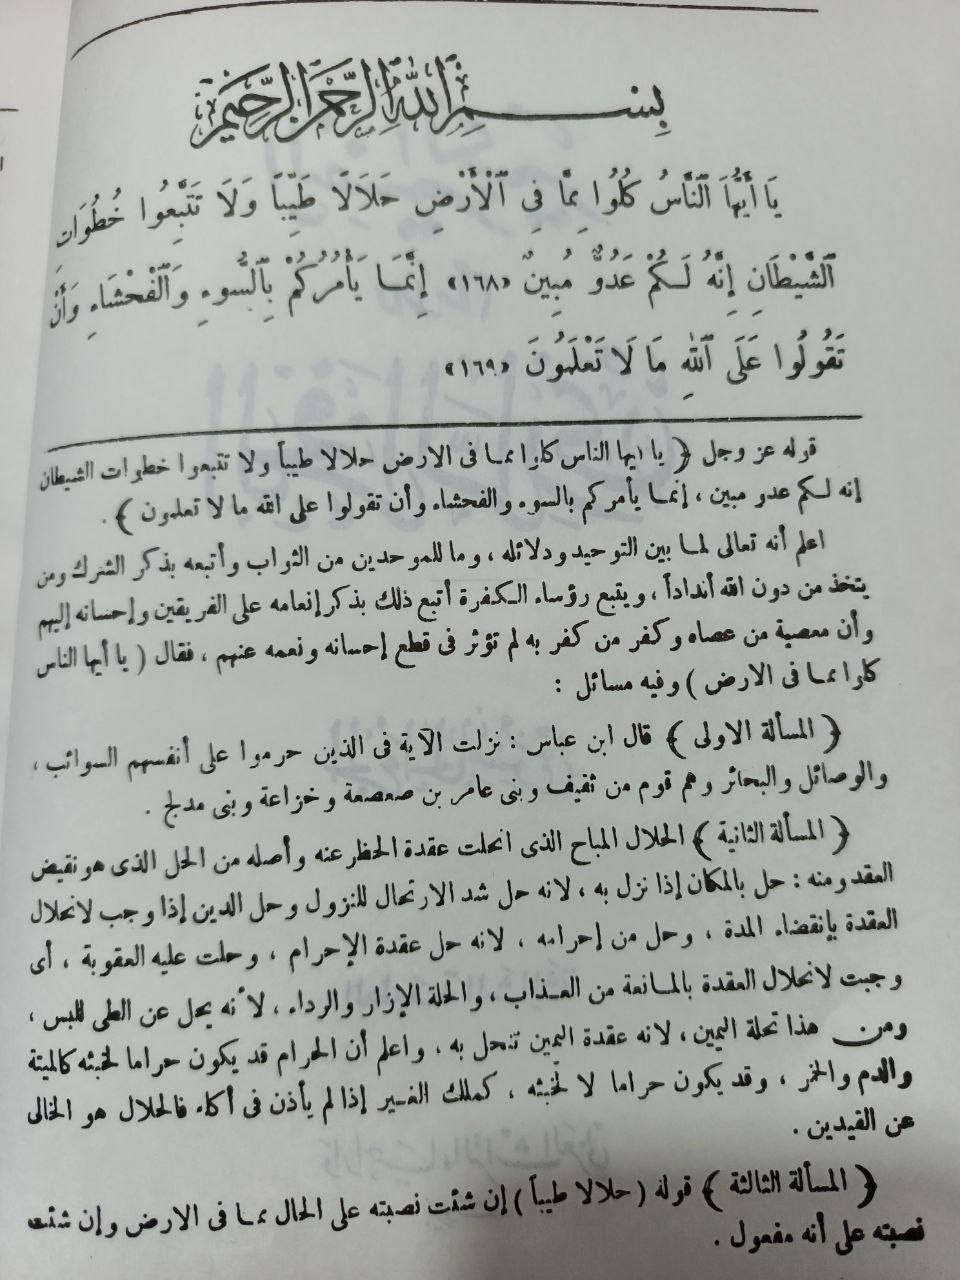 بِسْمِ اللَّهِ الرَّحْمَٰنِ الرَّحِيمِ
يَا أَيُّهَا ٱلنَّاسُ كُلُوا مِمَّا فِى ٱلْأَرْضِ حَلَالًا طَيِّباً وَلَا تَتَّبِعُوا خُطُوَاتِ
ٱلشَّيْطَانِ إِنَّهُ لَكُمْ عَدُوٌّ مُبِينٌ «١٦٨» إِنَّمَا يَأْمُرُكُمْ بِٱلسُّوءِ وَٱلْفَحْشَاءِ وَأَنْ
تَقُولُوا عَلَى ٱللهِ مَا لَا تَعْلَمُونَ «١٦٩»
قوله عز وجل ﴿ يا أيها الناس كلوا مما فى الارض حلالا طيباً ولا تتبعوا خطوات الشيطان
إنه لكم عدو مبين ، إنما يأمركم بالسوء والفحشاء وأن تقولوا على الله ما لا تعلمون ﴾ .
اعلم أنه تعالى لما بين التوحيد ودلائله ، وما للموحدين من الثواب وأتبعه بذكر الشرك ومن
يتخذ من دون الله أنداداً ، ويتبع رؤساء الكفرة أتبع ذلك بذكر إنعامه على الفريقين وإحسانه إليهم
وأن معصية من عصاه وكفر من كفر به لم تؤثر فى قطع إحسانه ونعمه عنهم ، فقال ( يا أيها الناس
كلوا مما فى الارض ) وفيه مسائل :
﴿ المسألة الاولى ﴾ قال ابن عباس : نزلت الآية فى الذين حرموا على أنفسهم السوائب ،
والوصائل والبحائر وهم قوم من ثقيف وبنى عامر بن صعصعة وخزاعة وبنى مدلج .
﴿ المسألة الثانية ﴾ الحلال المباح الذى انحلت عقدة الحظر عنه وأصله من الحل الذى هو نقيض
العقد ومنه : حل بالمكان إذا نزل به ، لانه حل شد الارتحال للنزول وحل الدين إذا وجب لانحلال
العقدة بإنقضاء المدة ، وحل من إحرامه ، لانه حل عقدة الإحرام ، وحلت عليه العقوبة ، أى
وجبت لانحلال العقدة بالمانعة من العذاب ، والحلة الإزار والرداء ، لأنه يحل عن الطى للبس ،
ومن هذا تحلة اليمين ، لانه عقدة اليمين تنحل به ، واعلم أن الحرام قد يكون حراما لخبثه كالميتة
والدم والخمر ، وقد يكون حراما لا لخبثه ، كملك الغير إذا لم يأذن فى أكله فالحلال هو الخالى
عن القيدين .
﴿ المسألة الثالثة ﴾ قوله ( حلالا طيباً ) إن شئت نصبته على الحال مما فى الارض وإن شئت
نصبته على أنه مفعول .